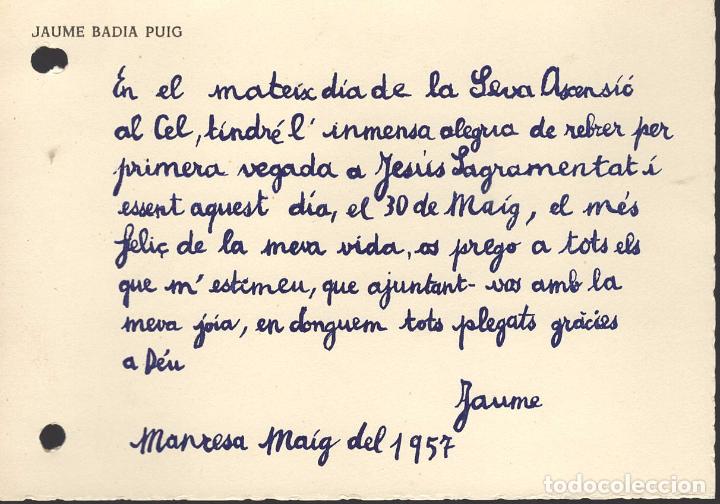 JAUME BADIA PUIG
En el mateix dia de la Seva Ascensió
al Cel, tindré l' inmensa alegria de rebrer per
primera vegada a Jesús Sagramentat i
essent aquest dia, el 30 de Maig, el més
feliç de la meva vida, os prego a tots els
que m' estimeu, que ajuntant-vos amb la
meva joia, en donguem tots plegats gràcies
a Déu
Jaume
Manresa Maig del 1957
todocoleccion